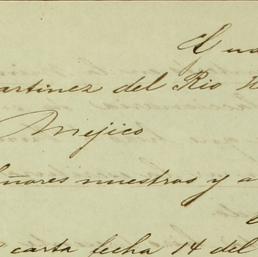 artinez del Rio H
Méjico
eñores nuestros y a
carta fecha 14 del